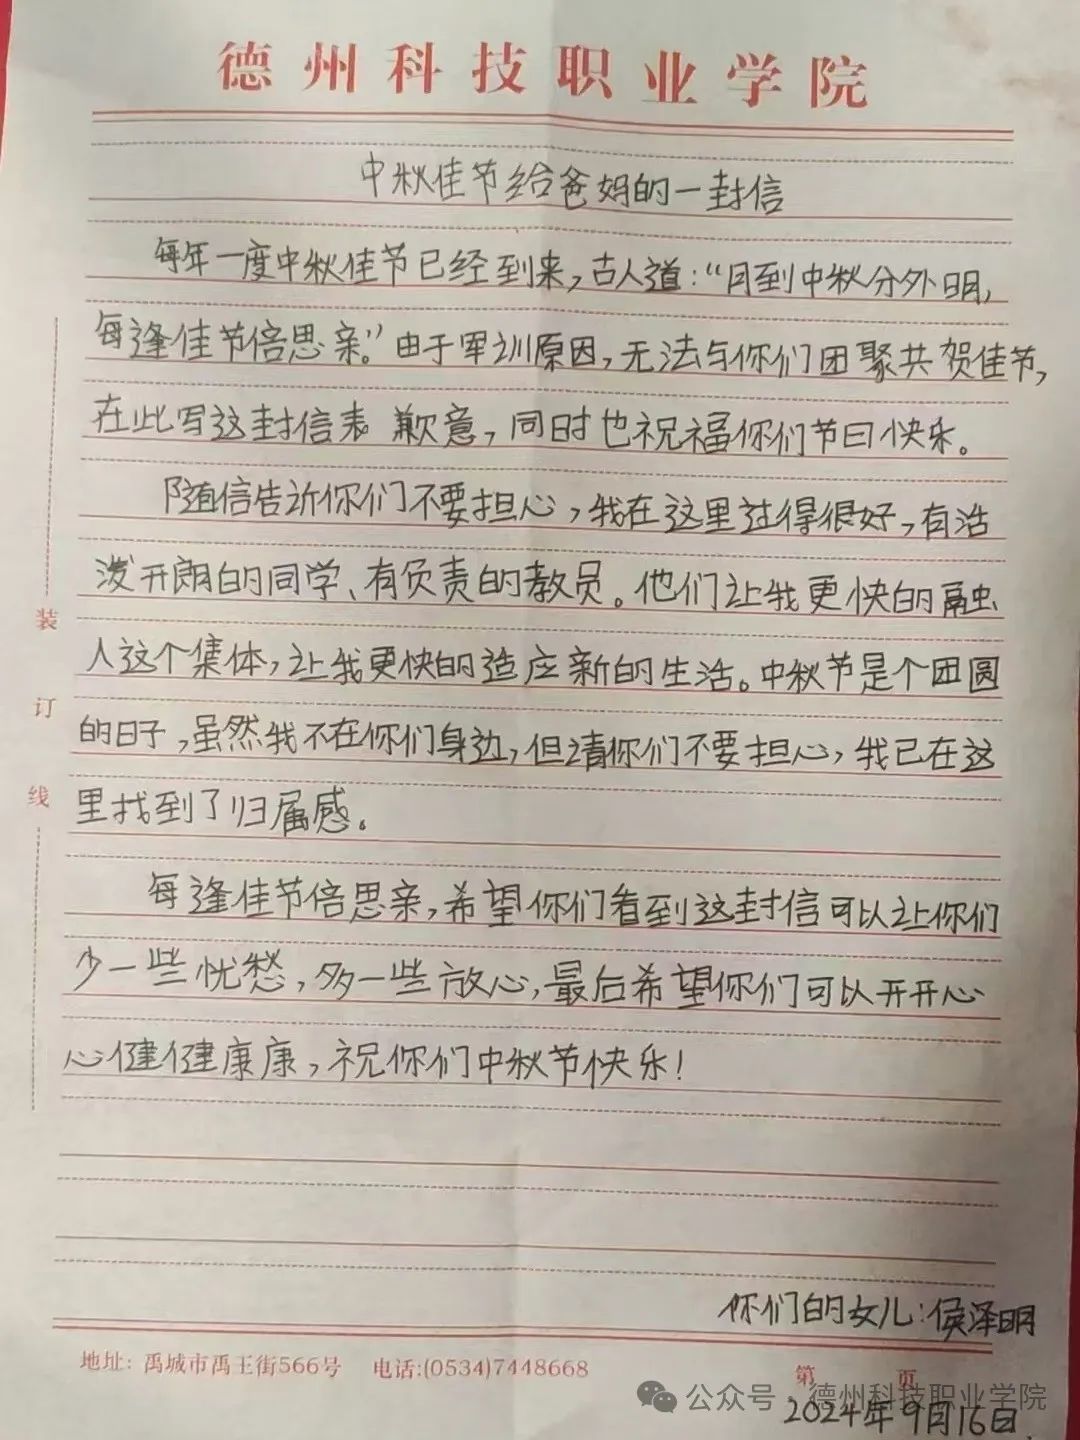 德州科技职业学院
中秋佳节给爸妈的一封信
每年一度中秋佳节已经到来，古人道：“月到中秋分外明，
每逢佳节倍思亲。”由于军训原因，无法与你们团聚共贺佳节，
在此写这封信表歉意，同时也祝福你们节日快乐。
随信告诉你们不要担心，我在这里过得很好，有活
泼开朗的同学、有负责的教员。他们让我更快的融
人这个集体，让我更快的适应新的生活。中秋节是个团圆
的日子，虽然我不在你们身边，但请你们不要担心，我已在这
里找到了归属感。
每逢佳节倍思亲，希望你们看到这封信可以让你们
少一些忧愁，多一些放心，最后希望你们可以开开心
心健健康康，祝你们中秋节快乐！
你们的女儿：侯泽明
装
订
线
地址：禹城市禹王街566号 电话:(0534)7448668
第 页
公众号·德州科技职业学院
2024年9月16日.